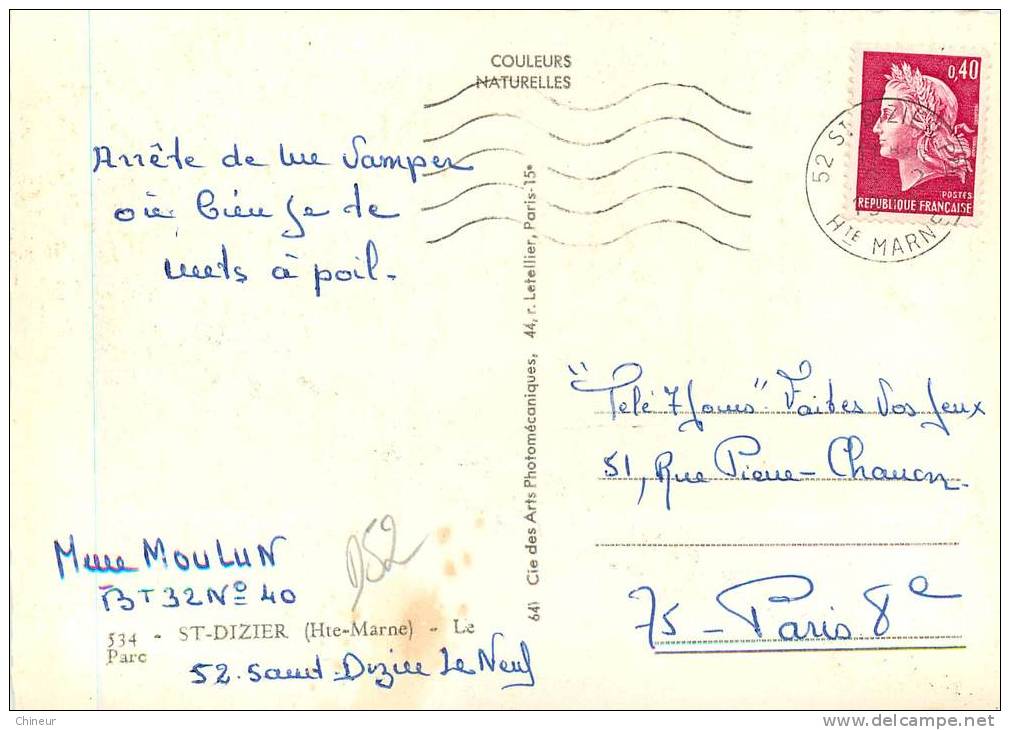 COULEURS
NATURELLES
0,40
POSTES
REPUBLIQUE FRANÇAISE
52 ST DIZIER
HTE MARNE
Arrête de me Vamper
où bien je te
mets à poil.
64) Cie des Arts Photomécaniques, 44, r. Letellier, Paris-15e
"Télé 7 Jours" Faites Vos Jeux
51, Rue Pierre-Charron.
75-Paris 8e
Mme MOULUN
BT 32 No 40
D52
534 - ST-DIZIER (Hte-Marne) - Le
Parc
52. Saint-Dizier Le Neuf
Chineur
www.delcampe.net